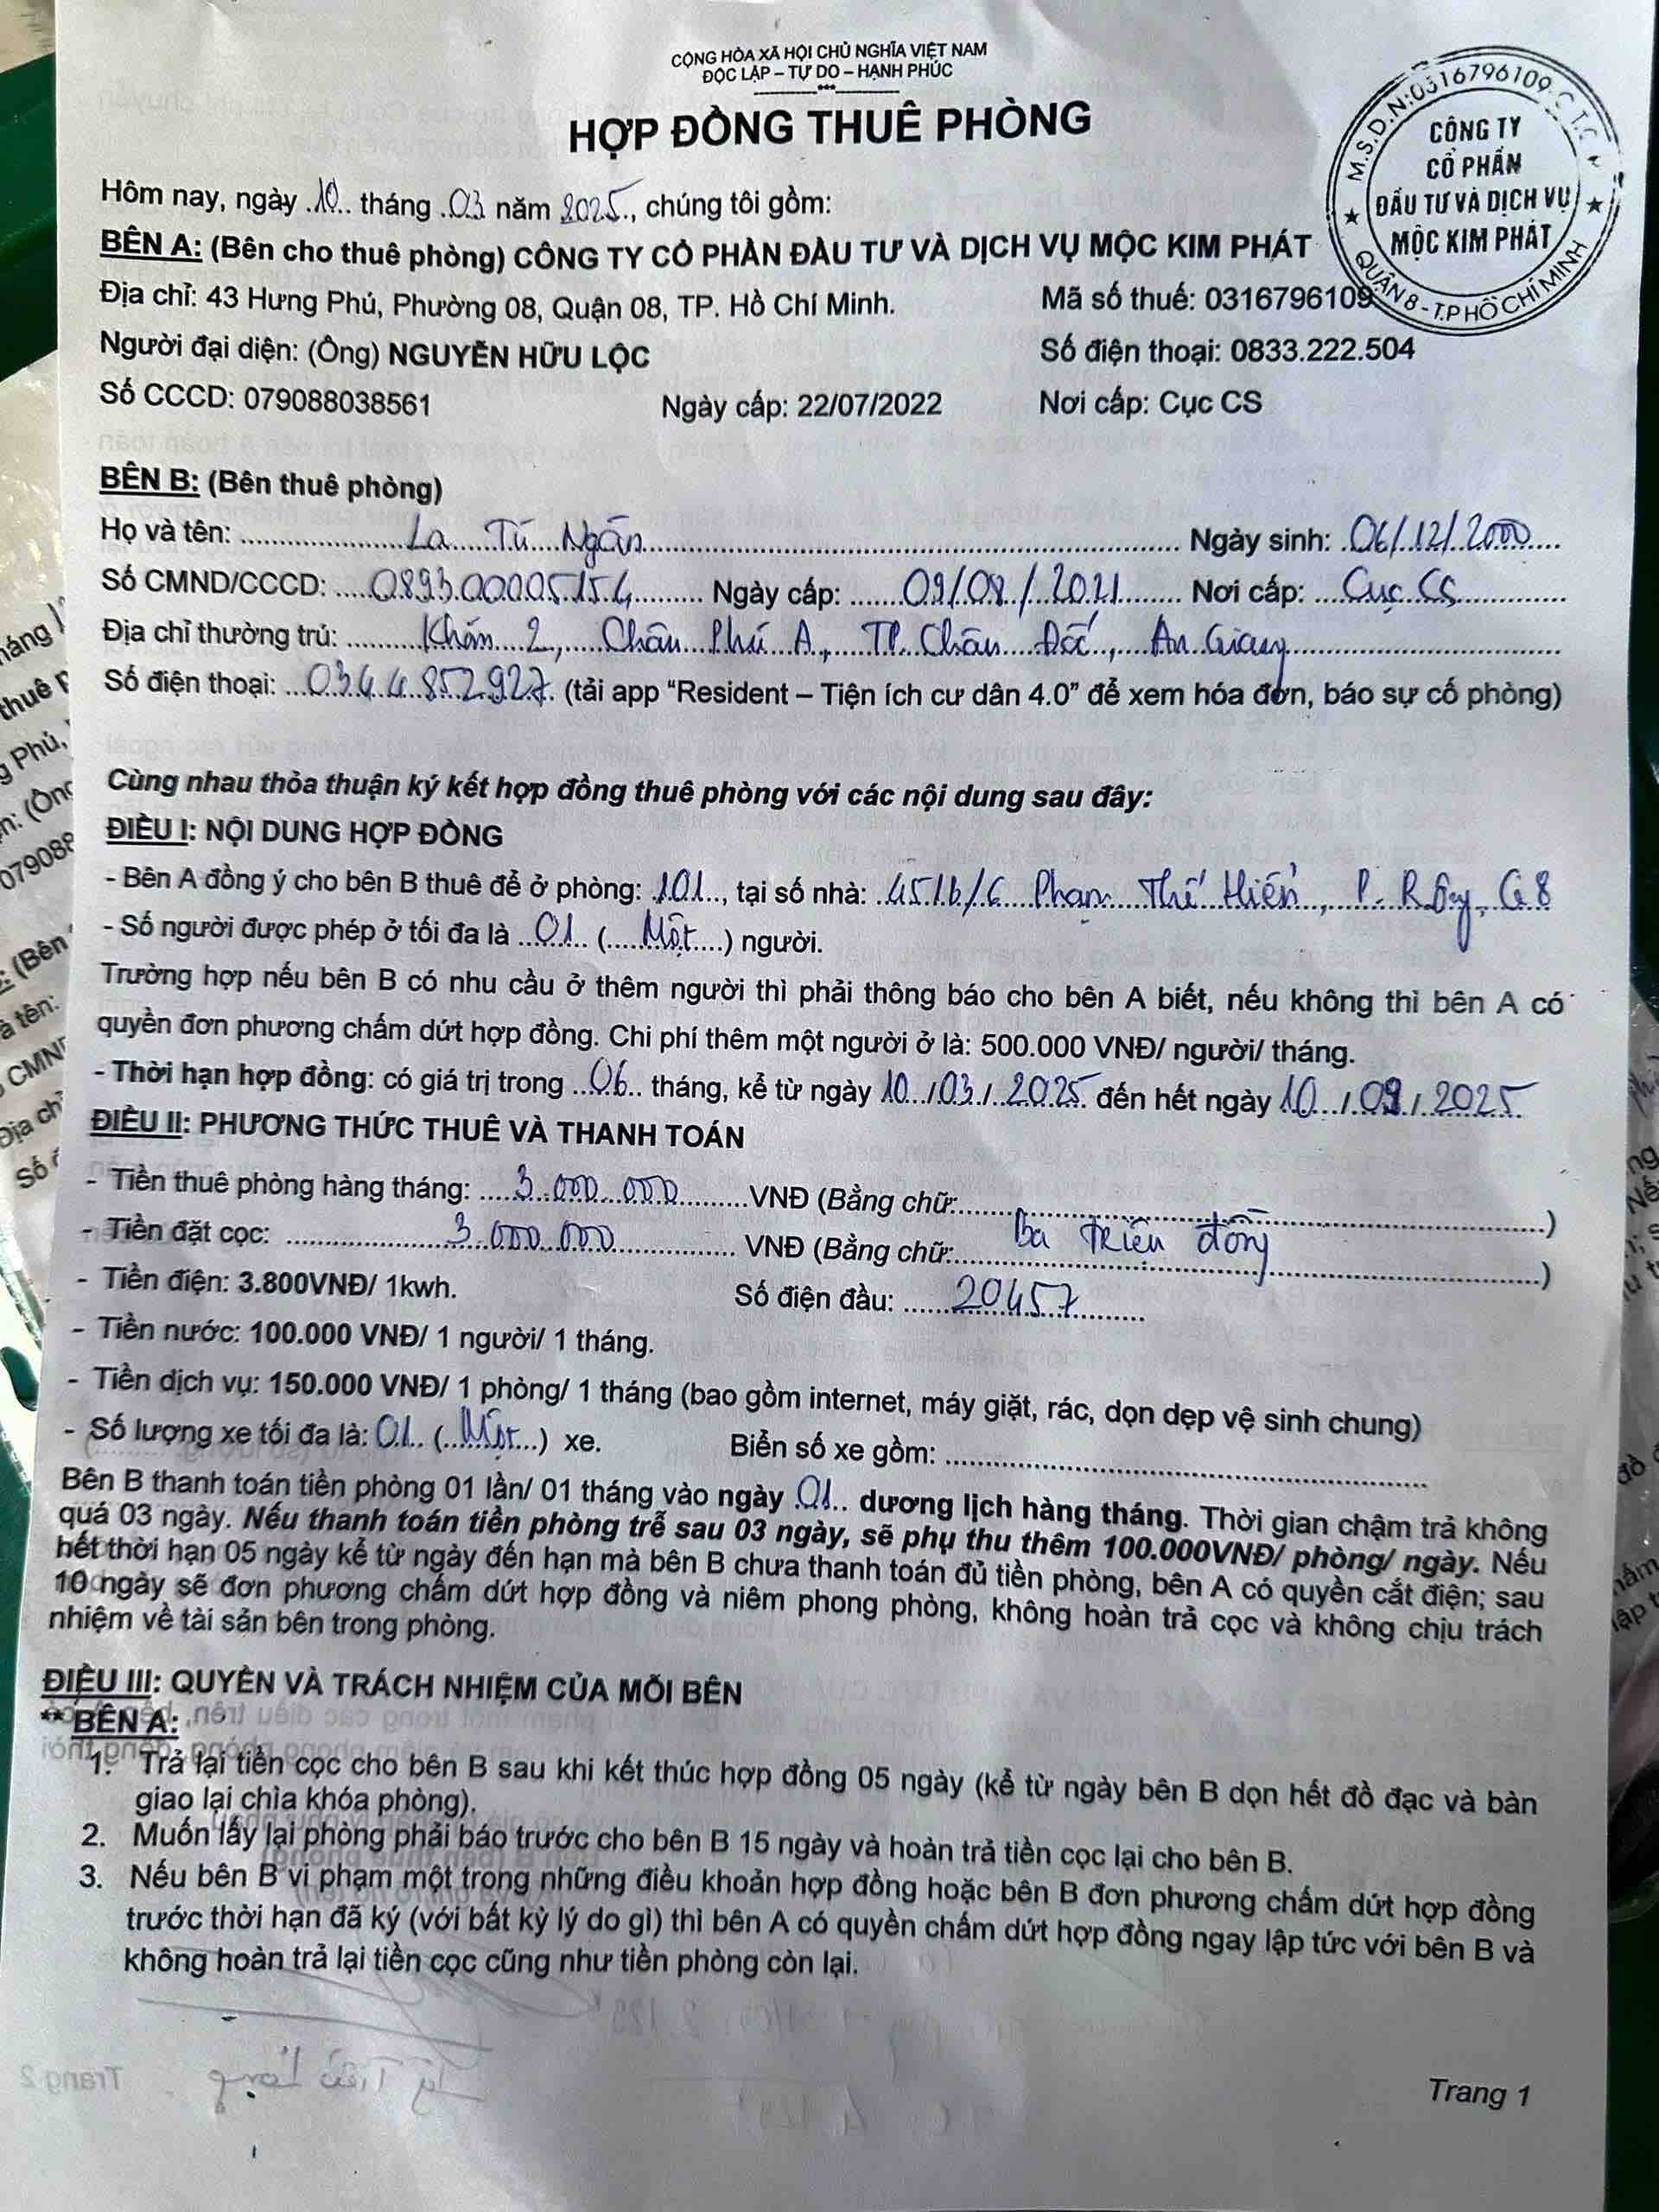 CỘNG HÒA XÃ HỘI CHỦ NGHĨA VIỆT NAM
ĐỘC LẬP – TỰ DO – HẠNH PHÚC
***
HỢP ĐỒNG THUÊ PHÒNG
M.S.D.N:0316796109
CÔNG TY
CỔ PHẦN
ĐẦU TƯ VÀ DỊCH VỤ
MỘC KIM PHÁT
QUẬN 8 - T.P HỒ CHÍ MINH
Hôm nay, ngày 10 tháng 03 năm 2025, chúng tôi gồm:
BÊN A: (Bên cho thuê phòng) CÔNG TY CỔ PHẦN ĐẦU TƯ VÀ DỊCH VỤ MỘC KIM PHÁT
Địa chỉ: 43 Hưng Phú, Phường 08, Quận 08, TP. Hồ Chí Minh. Mã số thuế: 0316796109
Người đại diện: (Ông) NGUYỄN HỮU LỘC Số điện thoại: 0833.222.504
Số CCCD: 079088038561 Ngày cấp: 22/07/2022 Nơi cấp: Cục CS
BÊN B: (Bên thuê phòng)
Họ và tên: La Tú Ngân Ngày sinh: 06/12/2000
Số CMND/CCCD: 089300005154 Ngày cấp: 09/08/2021 Nơi cấp: Cục CS
Địa chỉ thường trú: Khóm 2, Châu Phú A, TP. Châu Đốc, An Giang
Số điện thoại: 0344852927 (tải app “Resident – Tiện ích cư dân 4.0” để xem hóa đơn, báo sự cố phòng)
Cùng nhau thỏa thuận ký kết hợp đồng thuê phòng với các nội dung sau đây:
ĐIỀU I: NỘI DUNG HỢP ĐỒNG
- Bên A đồng ý cho bên B thuê để ở phòng: 101, tại số nhà: 451b/6 Phạm Thế Hiển, P. R Ông, Q8
- Số người được phép ở tối đa là 01 (Một) người.
Trường hợp nếu bên B có nhu cầu ở thêm người thì phải thông báo cho bên A biết, nếu không thì bên A có
quyền đơn phương chấm dứt hợp đồng. Chi phí thêm một người ở là: 500.000 VNĐ/ người/ tháng.
- Thời hạn hợp đồng: có giá trị trong 06 tháng, kể từ ngày 10/03/2025 đến hết ngày 10/09/2025
ĐIỀU II: PHƯƠNG THỨC THUÊ VÀ THANH TOÁN
- Tiền thuê phòng hàng tháng: 3.000.000 VNĐ (Bằng chữ: )
- Tiền đặt cọc: 3.000.000 VNĐ (Bằng chữ: Ba triệu đồng )
- Tiền điện: 3.800VNĐ/ 1kwh. Số điện đầu: 20457
- Tiền nước: 100.000 VNĐ/ 1 người/ 1 tháng.
- Tiền dịch vụ: 150.000 VNĐ/ 1 phòng/ 1 tháng (bao gồm internet, máy giặt, rác, dọn dẹp vệ sinh chung)
- Số lượng xe tối đa là: 01 (Một) xe. Biển số xe gồm:
Bên B thanh toán tiền phòng 01 lần/ 01 tháng vào ngày 01 dương lịch hàng tháng. Thời gian chậm trả không
quá 03 ngày. Nếu thanh toán tiền phòng trễ sau 03 ngày, sẽ phụ thu thêm 100.000VNĐ/ phòng/ ngày. Nếu
hết thời hạn 05 ngày kể từ ngày đến hạn mà bên B chưa thanh toán đủ tiền phòng, bên A có quyền cắt điện; sau
10 ngày sẽ đơn phương chấm dứt hợp đồng và niêm phong phòng, không hoàn trả cọc và không chịu trách
nhiệm về tài sản bên trong phòng.
ĐIỀU III: QUYỀN VÀ TRÁCH NHIỆM CỦA MỖI BÊN
** BÊN A:
1. Trả lại tiền cọc cho bên B sau khi kết thúc hợp đồng 05 ngày (kể từ ngày bên B dọn hết đồ đạc và bàn
giao lại chìa khóa phòng).
2. Muốn lấy lại phòng phải báo trước cho bên B 15 ngày và hoàn trả tiền cọc lại cho bên B.
3. Nếu bên B vi phạm một trong những điều khoản hợp đồng hoặc bên B đơn phương chấm dứt hợp đồng
trước thời hạn đã ký (với bất kỳ lý do gì) thì bên A có quyền chấm dứt hợp đồng ngay lập tức với bên B và
không hoàn trả lại tiền cọc cũng như tiền phòng còn lại.
Trang 1